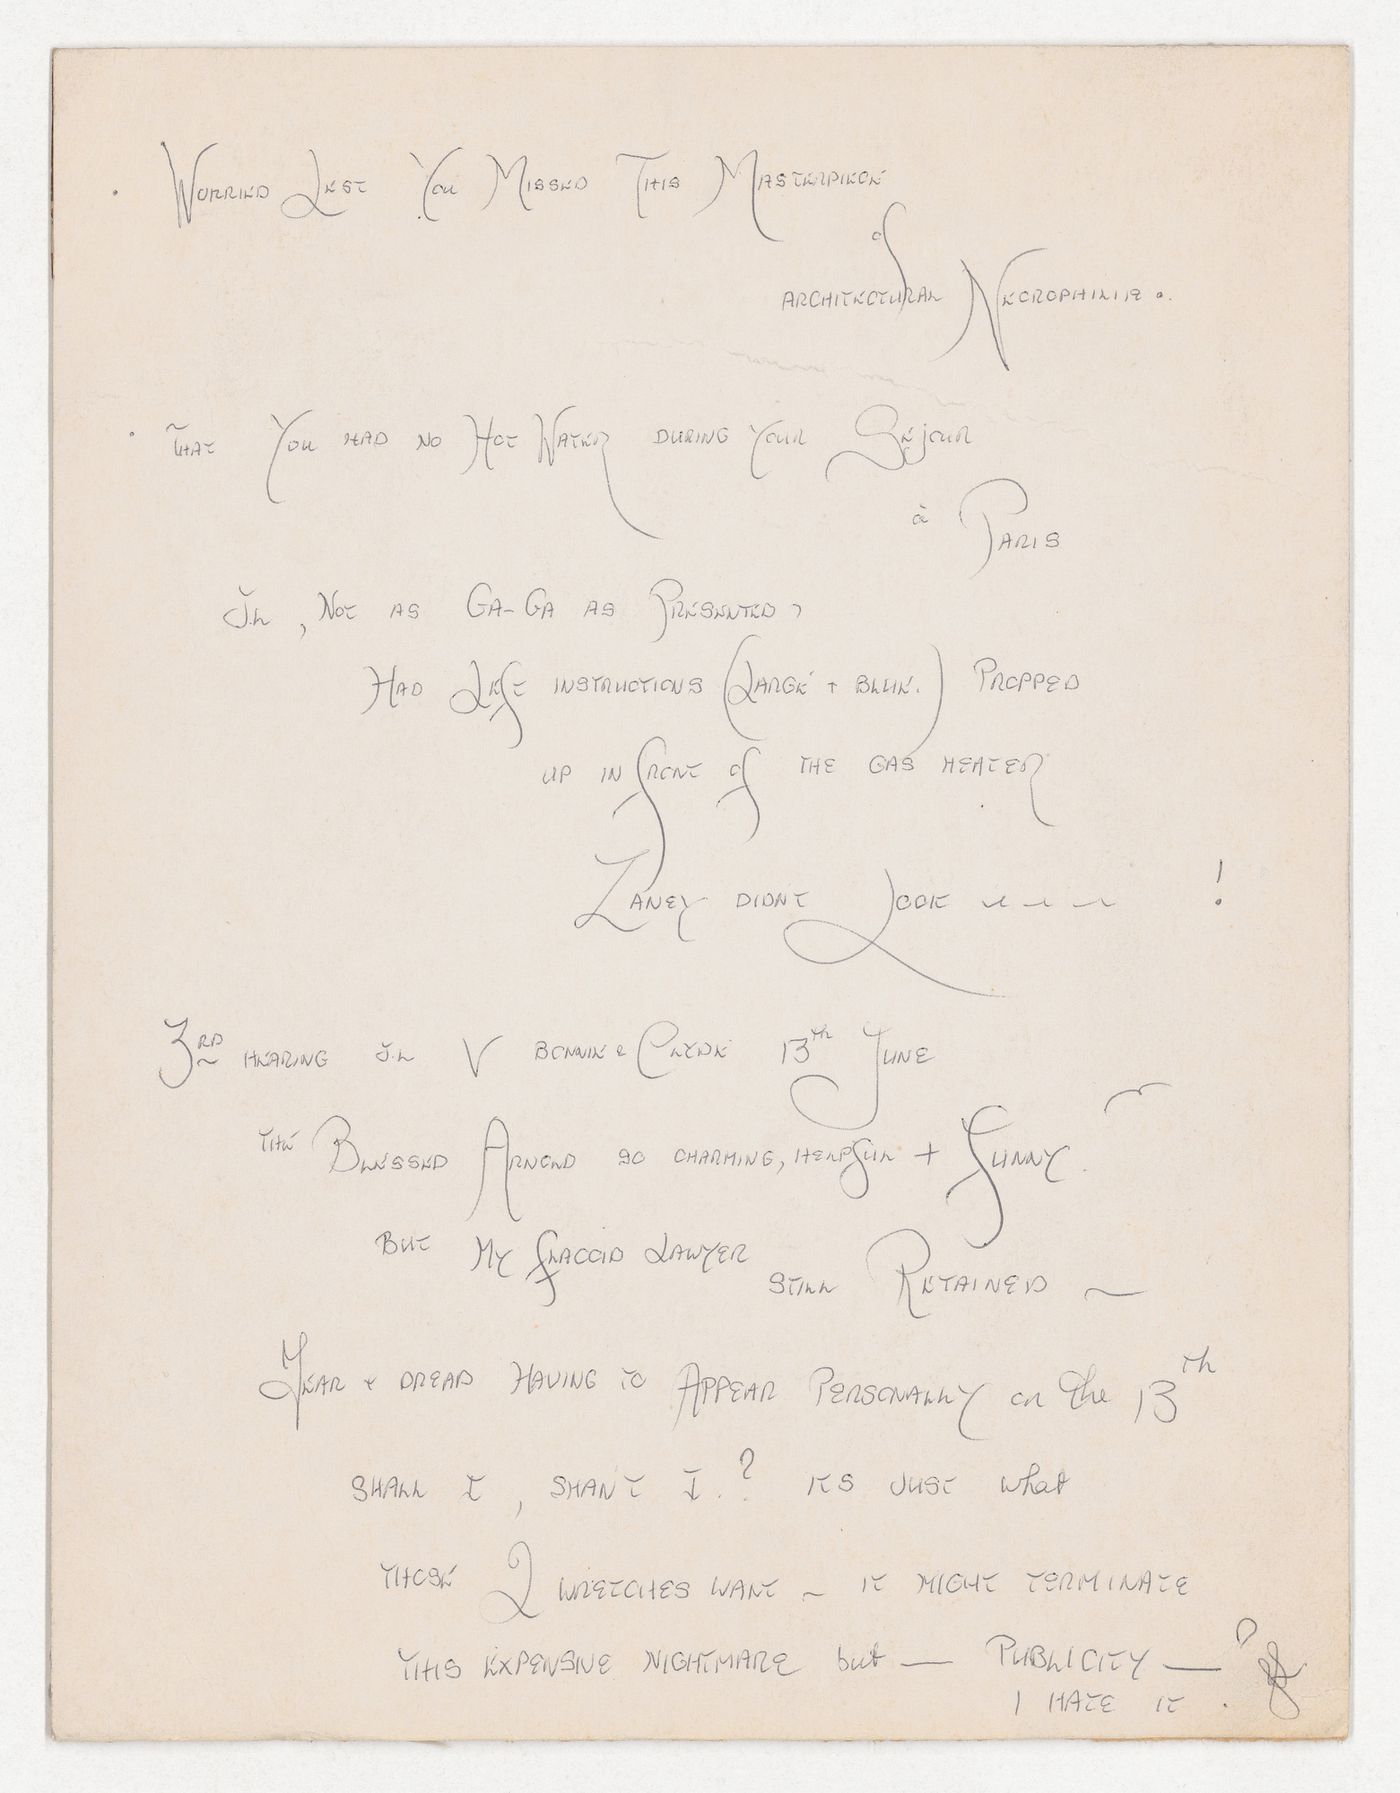 . Worried Lest You Missed This Masterpiece
of
Architectural Necrophilia.
. That You had no Hot Water during your Sejour
à Paris
J.L, Not as Ga-Ga as Presented,
Had Left instructions (Large + Blue.) Propped
up in front of the gas heater
Laney didnt Look ~ ~ ~ !
3rd hearing J.L V Bonnie & Clyde 13th June
The Blessed Arnold so charming, helpful + Funny.
But my flaccid Lawyer
still Retained ~
Fear + dread Having to Appear Personally on the 13th
Shall I, shan't I.? its just what
those 2 wretches want ~ it might terminate
this expensive nightmare but — Publicity —
I hate it.